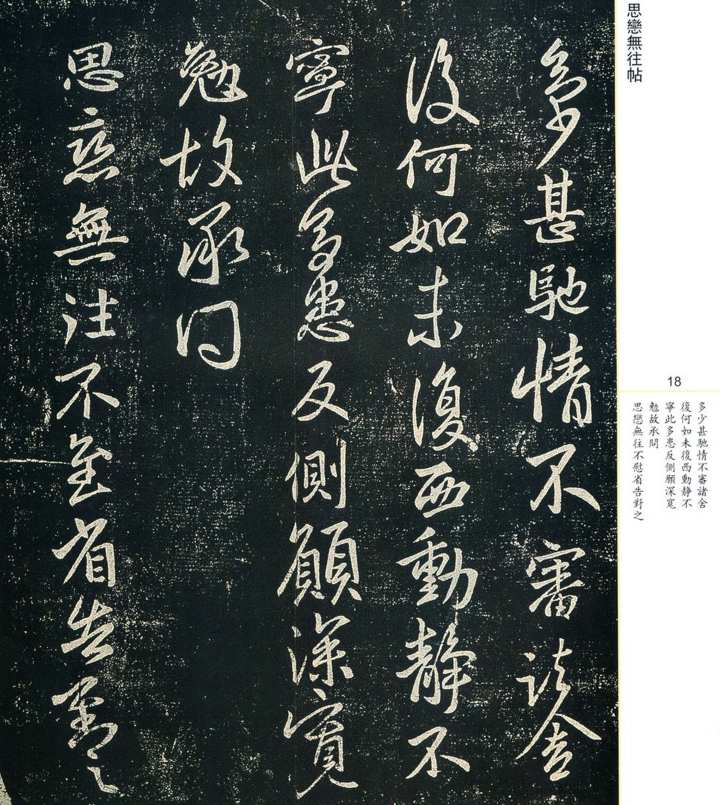 思戀無往帖
18
多少甚馳情不審諸舍
復何如未復西動靜不
寧此多患反側願深寬
勉故承問
思戀無往不慰省告對之
多少甚馳情不審諸舍
復何如未復西動靜不
寧此多患反側願深寬
勉故承問
思戀無往不至省告對之